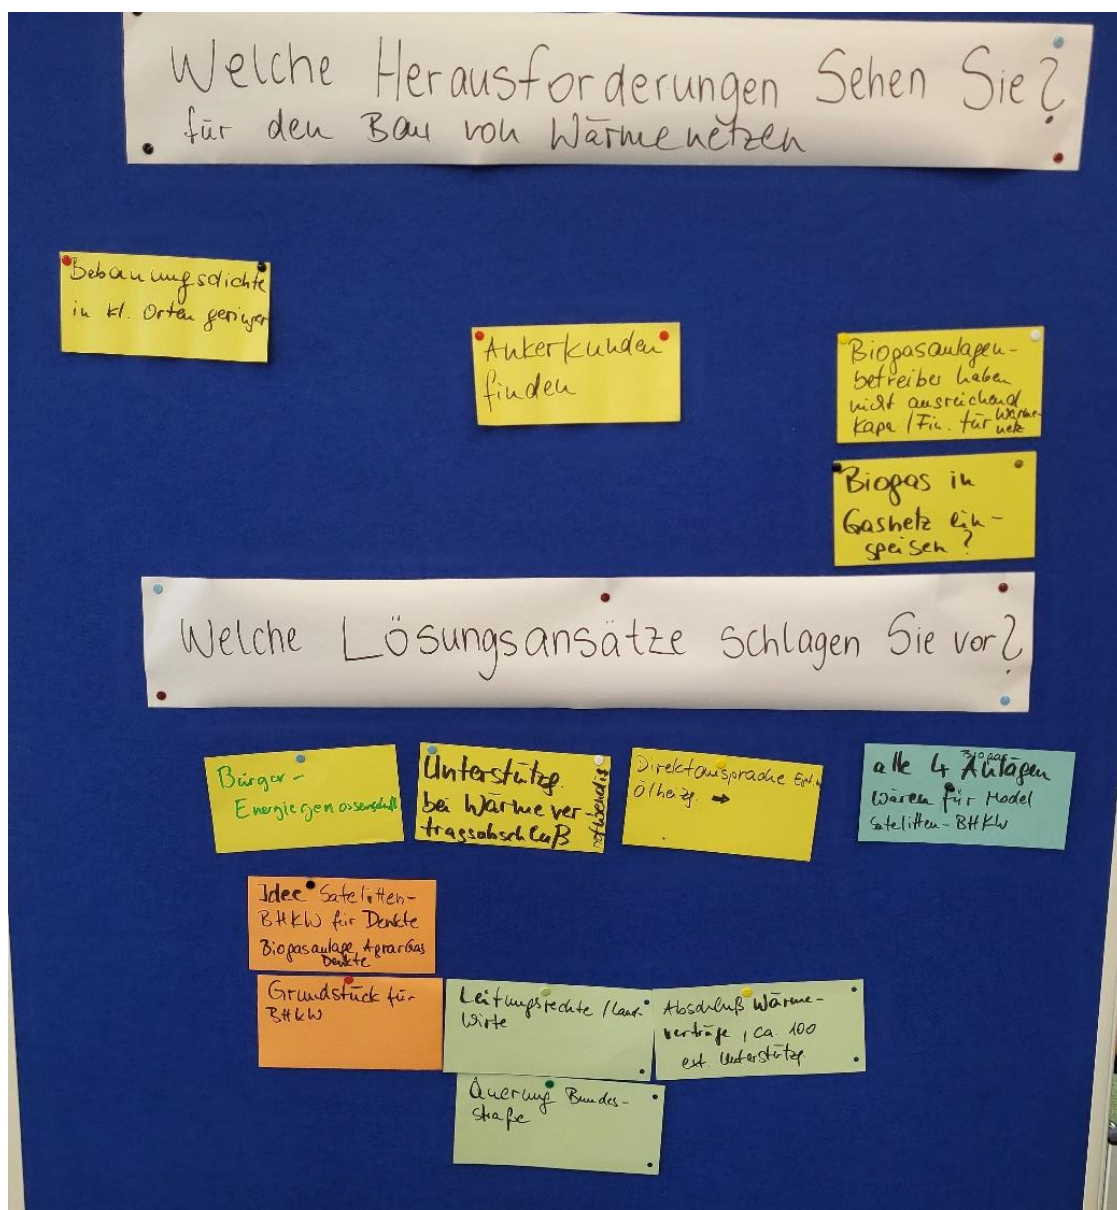 Welche Herausforderungen Sehen Sie?
für den Bau von Wärmenetzen
Bebauungsdichte
in kl. Orten geringer
Ankerkunden
finden
Biogasanlagen-
betreiber haben
nicht ausreichend
Kapa / Fin. für Wärme-
netz
Biogas in
Gasnetz ein-
speisen?
Welche Lösungsansätze schlagen Sie vor?
Bürger-
Energiegenossenschaft
Unterstützg.
bei Wärmever-
tragsabschluß
notwendig
Direktansprache
Ölheizg. →
alle 4 Biogas-
Anlagen
wären für Model
Satelitten-BHKW
Idee Satelitten-
BHKW für Denkte
Biogasanlage AgrarGas
Denkte
Grundstück für
BHKW
Leitungsrechte / Land-
Wirte
Abschluß Wärme-
verträge, ca. 100
ext. Unterstützg.
Querung Bundes-
straße